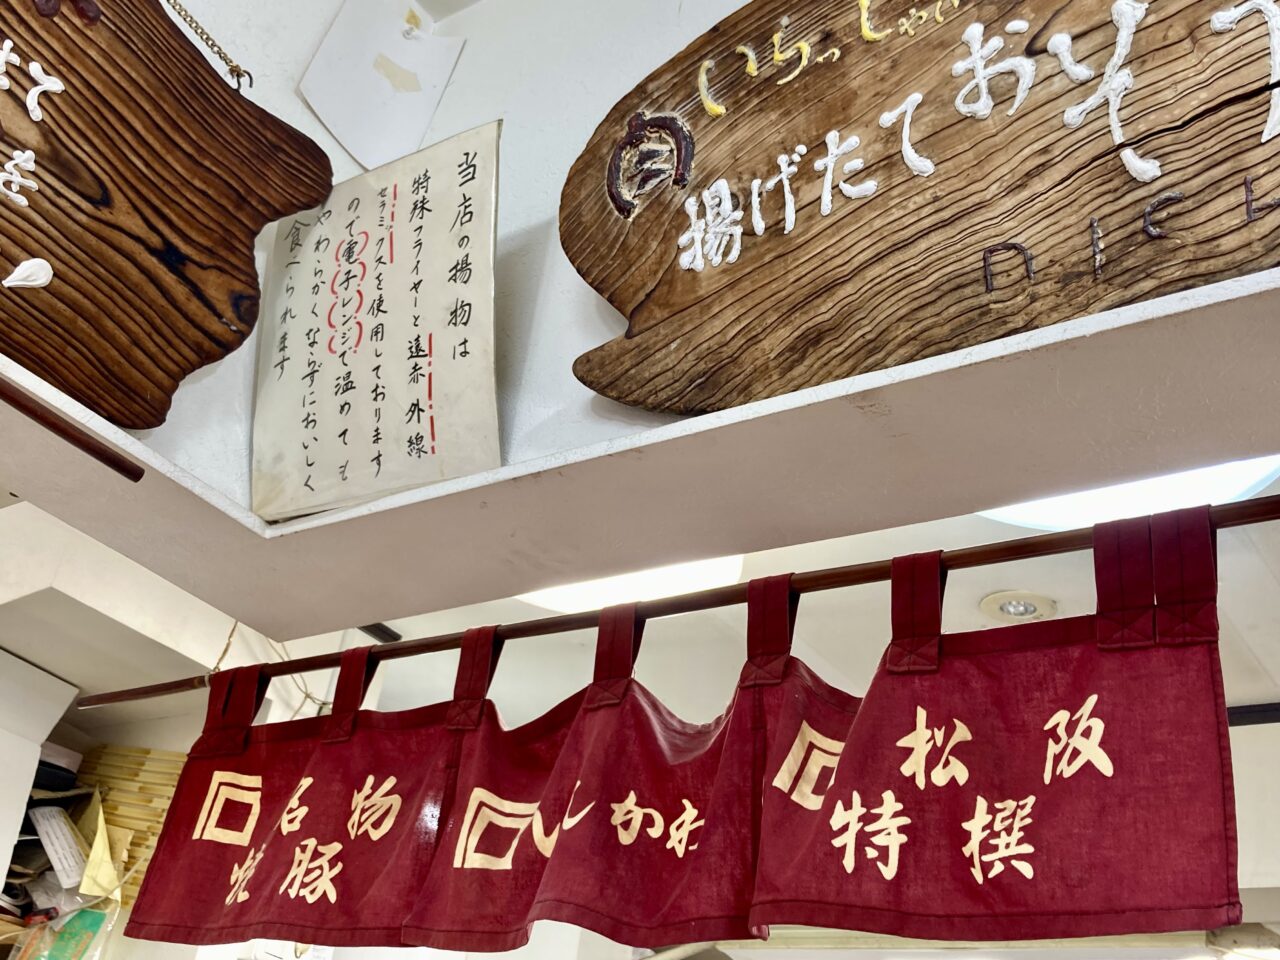 いらっしゃい
揚げたて
おい
DICH
当店の揚物は
特殊フライヤーと遠赤外線
セラミックスを使用しております
ので電子レンジで温めても
やわらかくならずにおいしく
食べられます
名物
焼豚
しかわ
松阪
特撰